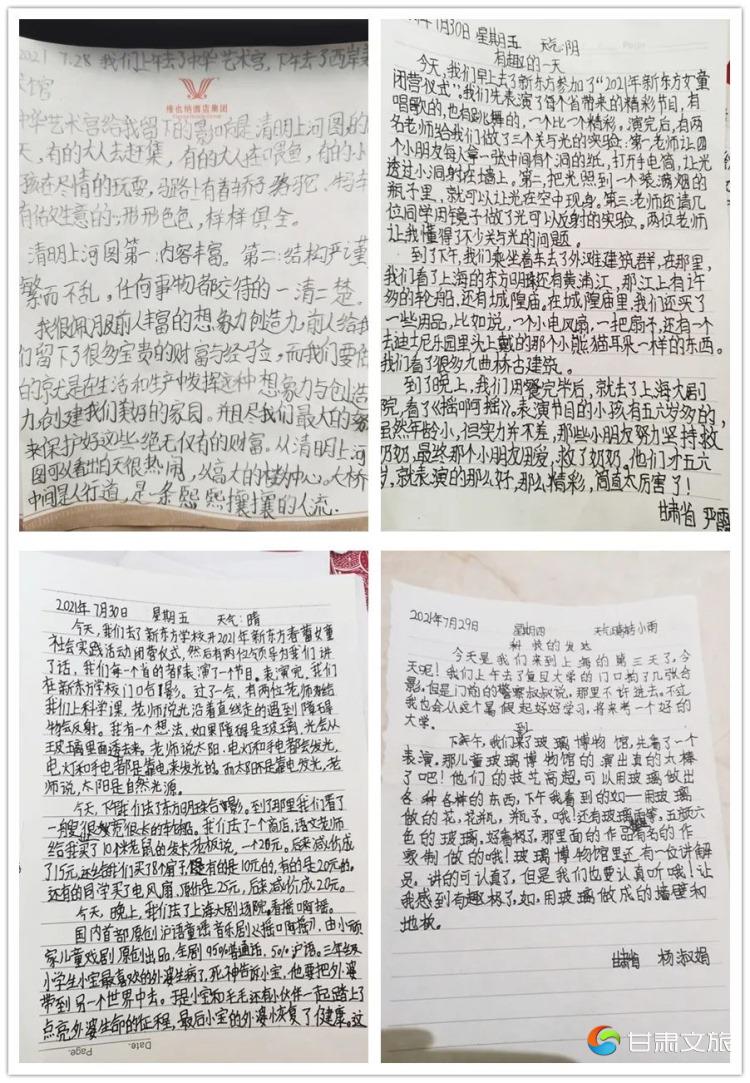 2021 7.28 我们上午去了中华艺术宫,下午去了西岸美
术馆
维也纳酒店集团
中华艺术宫给我留下的影响是清明上河图,的
天,有的大人去赶集,有的大人在喂鱼,有的小
孩在尽情的玩耍,马路上有着轿子骆驼
有做生意的,形形色色,样样俱全。
清明上河图第一:内容丰富。第二:结构严谨
繁而不乱,任何事物都交待的一清二楚。
我很佩服前人丰富的想象力创造力,前人给我
们留下了很多宝贵的财富与经验,而我们要做
的就是在生活和生产中发挥这种想象力与创造
力,创建我们美好的家园。并且尽我们最大的努
来保护好这些绝无仅有的财富。从清明上河
图可以看出白天很热闹,以高大的楼为中心。大桥
中间是人行道,是一条熙熙攘攘的人流.
1年7月30日 星期五 天气:阴
有趣的一天
今天,我们早上去了新东方参加了“2021年新东方女童
闭营仪式”。我们先表演了每个省带来的精彩节目,有
唱歌的,也有跳舞的,一个比一个精彩。演完后,有两
名老师给我们做了三个关与光的实验:第一老师让四
个小朋友每人拿一张中间有个洞的纸,打开手电筒,让光
透过小洞,射在墙上。第二,把光照到一个装满烟的
瓶子里,就可以让光在空中现身。第三:老师还请几
位同学用镜子做了光可以反射的实验。两位老师
让我懂得了不少关与光的问题。
到了下午,我们乘坐着车去了外滩建筑群,在那里,
我们看了上海的东方明珠还有黄浦江,那江上有许
多的轮船,还有城隍庙。在城隍庙里,我们还买了
一些用品,比如说,一个小电风扇,一把扇子,还有一个
去迪士尼乐园里头上戴的那个小熊猫耳朵一样的东西。
我们看了很多九曲桥古建筑。
到了晚上,我们用餐完毕后,就去了上海大剧
院,看了《摇啊摇》。表演节目的小孩有五六岁的,
虽然年龄小,但实力并不差,那些小朋友努力坚持救
奶奶,最终那个小朋友用爱,救了奶奶,他们才五六
岁,就表演的那么好,那么精彩,简直太厉害了!
甘肃省 严霞
2021年7月30日 星期五 天气:晴
今天,我们去了新东方学校开2021年新东方春蕾女童
社会实践活动闭营仪式,然后有两位领导为我们讲
了话,我们每一个省的都表演了一个节目。表演完,我们
在新东方学校门口合影。过了一会,有两位老师给
我们上科学课,老师说光沿着直线走的遇到障碍
物会反射。我有一个想法,如果障碍是玻璃,光会从
玻璃里面透去。老师说太阳,电灯和手电都会发光,
电灯和手电都是靠电来发光的。而太阳不是靠电发光,老
师说,太阳是自然光源。
今天,下午我们去了东方明珠合影。到了那里我们看了
一艘很宽很长的轮船。我们去了一个商店,语文老师
给我买了10个米老鼠的发卡,老板说,一个20元。后来减价成
了15元,还给我们买了8个扇子,有的是10元的,有的是20元的。
还有的同学买了电风扇,原价是25元,后来减价成20元。
今天,晚上,我们去了上海大剧场院。看摇啊摇。
国内首部原创沪语童谣音乐剧《摇啊摇》,由小顽
家儿童戏剧原创出品,全剧95%普通话,5%沪语。三年级
小学生小宝最喜欢的外婆生病了,死神告诉小宝,他要把外婆
带到另一个世界中去。于是小宝和毛毛还有小伙伴一起踏上了
点亮外婆生命的征程,最后小宝的外婆恢复了健康。这
Page.
Date.
2021年7月29日 星期四 天气:晴转小雨
科技的发达
今天是我们来到上海的第三天了,今
天呢!我们上午去了复旦大学的门口拍了几张合
影。但是门岗的警察叔叔说,那里不许进去。不过
我也会从这个暑假起好好学习,将来考一个好的
大学。
下午,我们来到了玻璃博物馆,先看了一个
表演。那儿童玻璃博物馆的演出真的太棒
了吧!他们的技艺高超,可以用玻璃做出
各种各样的东西,下午我看到的如一用玻璃
做的花,花瓶,米瓶子,哦!还有玻璃雨伞,五颜六
色的玻璃,好看极了,那里面的作品有名的作
家制做的哦!玻璃博物馆里还有一位讲解
员。讲的可认真了,但是我们也要认真听哦!让
我感到有趣极了,如,用玻璃做成的墙壁和
地板。
甘肃省 杨淑娟
甘肃文旅